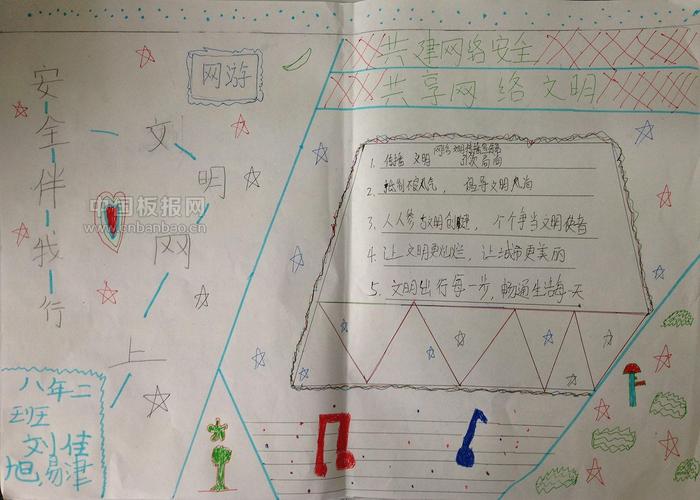 共建网络安全
共享网络文明
网游
安全伴我行
文明网上
1. 传播文明
2. 绘制不良风气，倡导文明风尚
3. 人人参与文明创建，个个争当文明使者
4. 让文明更灿烂，让城市更美丽
5. 文明出行每一步，畅通生活每一天
中国板报网
www.cnbanbao.cn
八年二
班
刘佳
旭易津